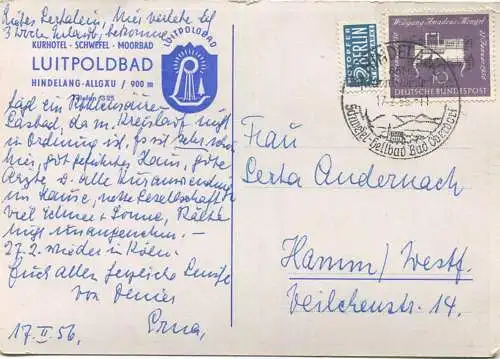 Liebes Certalein, hier verlebe ich
3 Wochen Urlaub, bekomme
KURHOTEL - SCHWEFEL - MOORBAD
LUITPOLDBAD
HINDELANG-ALLGÄU / 900 m
LUITPOLDBAD
tägl ein Kohlensäure-
Gasbad, da m. Kreislauf nicht
in Ordnung ist. Es ist sehr schön
hier, gut geführtes Haus, gute
Ärzte u. alle Kuranwendung
im Hause, nette Gesellschaft
viel Schnee + Sonne, Kälte
nicht unangenehm. -
27.2. wieder in Köln.
Euch allen herzliche Grüße
von Deiner
17. II. 56. Erna,
NOTOPFER
2 BERLIN
STEUERMARKE
Wolfgang Amadeus Mozart
10
DEUTSCHE BUNDESPOST
17.2.56.-11
Schwefel-Heilbad Bad Oberdorf
Frau
Certa Andernach
Hamm/Westf.
Veilchenstr. 14.